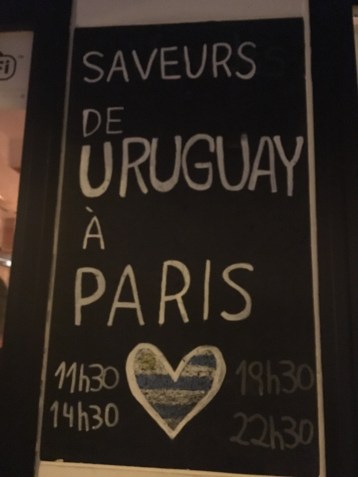 Fi
SAVEURS
DE
URUGUAY
À
PARIS
11h30 19h30
14h30 22h30